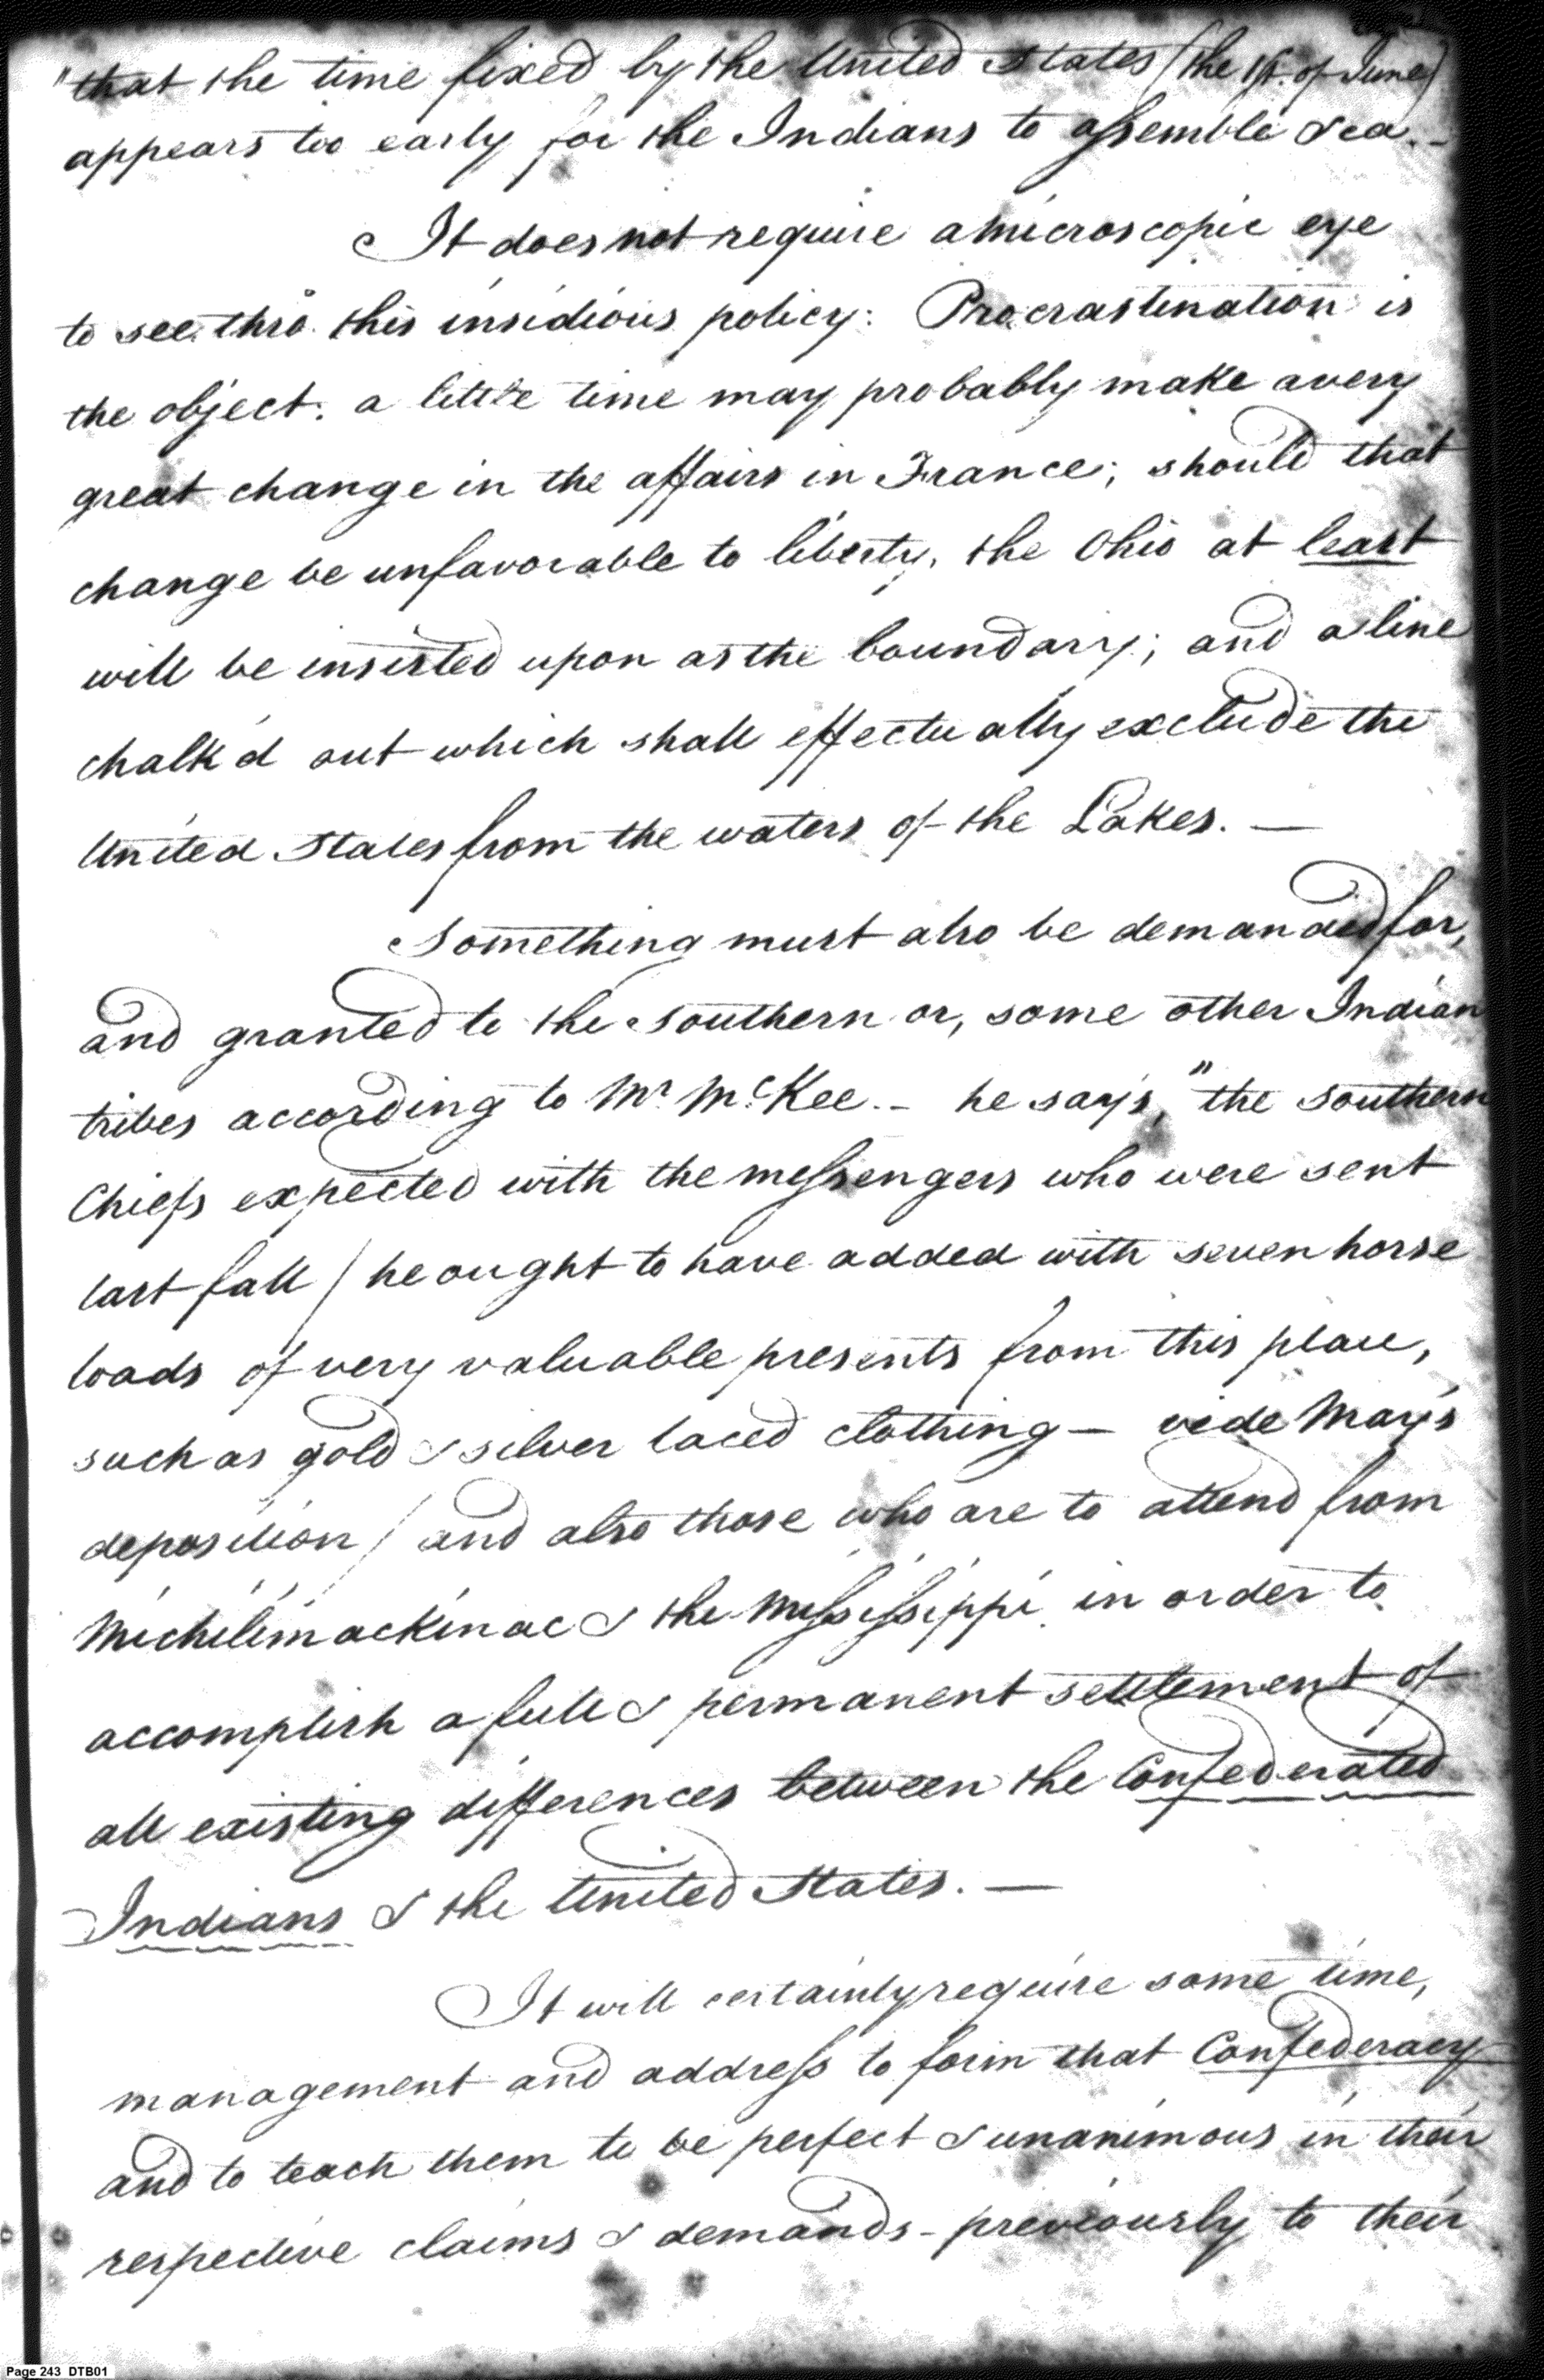 "that the time fixed by the United States (the 1st. of June)
appears too early for the Indians to assemble &ca. -
It does not require a microscopic eye
to see thro this insidious policy: Procrastination is
the object. a little time may probably make a very
great change in the affairs in France; should that
change be unfavorable to liberty, the Ohio at least
will be insisted upon as the boundary; and a line
chalk'd out which shall effectually exclude the
United States from the waters of the Lakes. —
Something must also be demanded for,
and granted to the Southern or, some other Indian
tribes according to Mr McKee. - he says, "the southern
Chiefs expected with the messengers who were sent
last fall / he ought to have added with seven horse
loads of very valuable presents from this place,
such as gold & silver laced clothing — vide May's
deposition / and also those who are to attend from
Michilimackinac & the Mississippi in order to
accomplish a full & permanent settlement of
all existing differences between the Confederated
Indians & the United States. —
It will certainly require some time,
management and address to form that Confederacy
and to teach them to be perfect & unanimous in their
respective claims & demands - previously to their
Page 243 DTB01